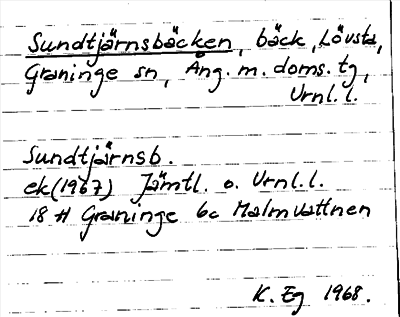 Sundtjärnsbäcken, bäck, Lövsta,
Graninge sn, Ång. m. doms. tg,
Vrnl. l.
Sundtjärnsb.
ek(1967) Jämtl. o. Vrnl. l.
18 H Graninge 6c Malmvattnen
K. Eg 1968.